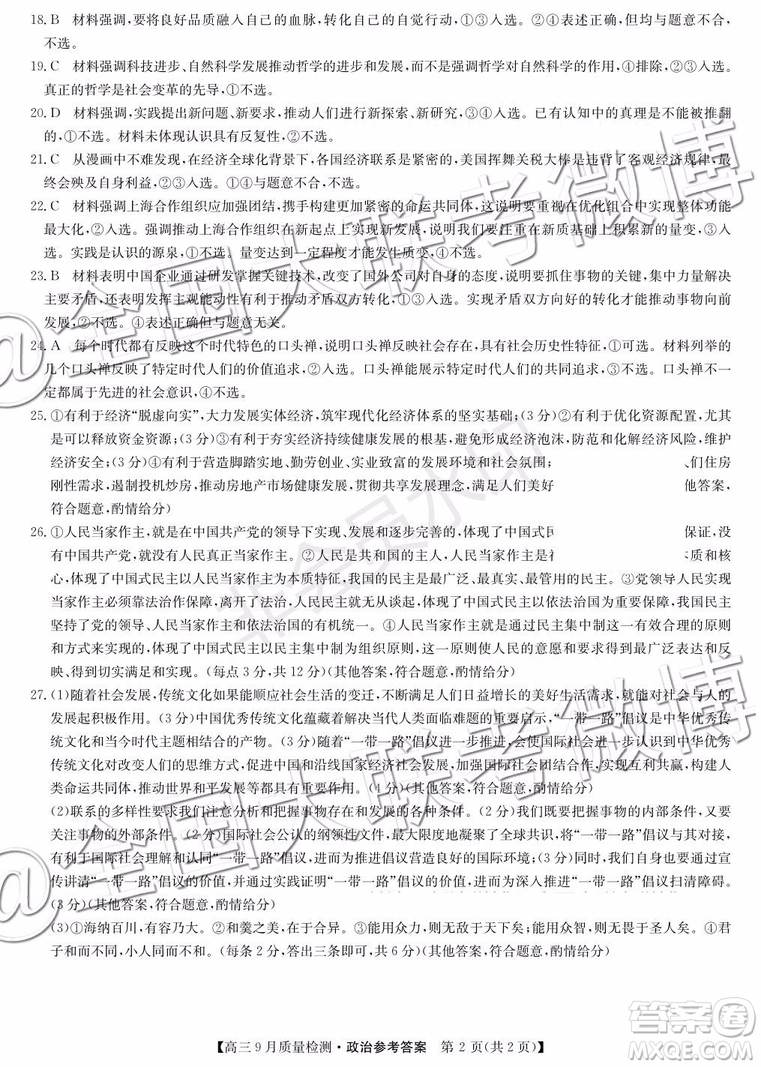 18. B　材料强调，要将良好品质融入自己的血脉，转化自己的自觉行动，②③入选。①④表述正确，但与题意不符，
不选。
19. C　材料强调科技进步、自然科学发展推动哲学的进步和发展，而不是强调哲学对科学的反作用，④排除，②③入选。
真正的哲学是社会变革的先导，①不选。
20. D　材料强调，实践提出新问题、新要求，推动人们进行新探索、新研究，③④入选。已知事实中的真理是不能被推翻
的，①不选。材料未体现认识具有反复性，②不选。
21. C　从漫画中不难发现，在经济全球化背景下，各国经济联系是紧密的，美国挥舞关税大棒是违背了客观经济规律，最
终会殃及自身利益，②③入选。①④与题意不合，不选。
22. C　材料强调上海合作组织应加强团结，携手构建更加紧密的命运共同体，这说明要重视在优化组合中实现整体功能
最大化，②入选。强调推动上海合作组织在新起点上实现新发展，说明我们要注重在新质基础上积累新的量变，③入
选。实践是认识的源泉，①不选。量变达到一定程度才能发生质变，④不选。
23. B　材料表明中国企业通过研发掌握关键技术，改变了国外公司对自身的态度，说明要抓住事物的关键，集中力量解决
主要矛盾，还表明发挥主观能动性有利于推动矛盾双方转化，①③入选。矛盾双方向好的方向转化才能推动事物向前
发展，②不选；④表述正确但与题意无关。
24. A　每个时代都有反映这个时代特色的口头禅，说明其反映社会生产生活，具有社会历史性特征，①③可选。材料列举的
几个口头禅不能展示特定时代人们的共同追求，②不选。口头禅能反映特定时代人们的生产和生活，但口头禅不一定
都属于先进的社会意识，④不选。
25. ①有利于经济“脱虚向实”，大力发展实体经济，筑牢现代化经济体系的坚实基础；(3分)②有利于优化资源配置，尤其
是可以释放资金资源；(3分)③有利于夯实经济持续健康发展的根基，避免形成经济泡沫，防范和化解经济风险，维护
经济安全；(3分)④有利于营造脚踏实地、勤劳创业、实业致富的发展环境和社会氛围；　们住房
刚性需求，遏制投机炒房，推动房地产市场健康发展，贯彻共享发展理念，满足人们美好　他答案，
符合题意，酌情给分)
26. ①人民当家作主，就是在中国共产党的领导下实现、发展和逐步完善的，体现了中国式民　保证，没
有中国共产党，就没有人民真正当家作主。②人民是共和国的主人，人民当家作主是社　质和核
心，体现了中国式民主以人民当家作主为本质特征，我国的民主是最广泛、最真实、最管用的民主。③党领导人民当家
作主必须靠法治作保障，离开了法治，人民民主就无法实现，体现了中国式民主以依法治国为基本方式，实现党的领
导、人民当家作主和依法治国的有机统一。④人民当家作主，是通过民主集中制这一国家政权组织和活动的原则和
方式来实现的，体现了中国式民主以民主集中制为组织原则，广大人民的愿望、要求通过民主集中制得到广泛表达和反
映、得到切实满足和实现。(每点3分，共12分)(其他答案，符合题意，酌情给分)
27. (1)随着社会发展，传统文化如果能顺应社会生活的变迁，不断满足人们日益增长的美好生活需要，就能对社会与人的
发展起积极作用。(3分)中国优秀传统文化蕴藏着解决当代人类面临难题的重要启示，“一带一路”倡议是中华优秀传
统文化和当今时代主题相结合的产物。(3分)随着“一带一路”倡议进一步推进，会使国际社会进一步认识到中华优
秀传统文化对人们的思维方式，促进中国和沿线国家经济社会发展，促进国际社会团结合作，实现互利共赢，推动构建人
类命运共同体，推动世界和平发展等都大有裨益。(4分)(其他答案，符合题意，酌情给分)
(2)联系的多样性要求我们注意分析和把握事物存在和发展的各种条件。(2分)我们既要把握事物的内部条件，又要
关注事物的外部条件。(2分)国际社会公认的纲领性文件，最大限度地凝聚了全球的共识，把“一带一路”倡议与其对接，
有利于国际社会理解和认同“一带一路”倡议，进而为推进其倡议营造良好的国际环境；(3分)同时，通过有效的对外宣
传讲清“一带一路”倡议的行动与价值，进而为推动国际社会认可“一带一路”倡议的价值，进而为推进其倡议扫清障碍。
(3分)(其他答案，符合题意，酌情给分)
(3)①海纳百川，有容乃大。②和羹之美，在于合异。③能用众力，则无敌于天下矣；能用众智，则无畏于圣人矣。④君
子和而不同，小人同而不和。(每条2分，答出三条即可，共6分)(其他答案，符合题意，酌情给分)
【高三9月质量检测·政治参考答案　第2页(共2页)】
@全国大联考微博
@全国大联考微博
非会员水印
答案圈
MXQE.COM